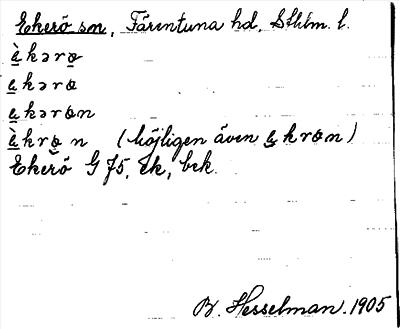 Ekerö sn, Färentuna hd, Sthlm. l.
è̱kərø̱
e̱kərø
e̱kərøn
è̱krø̱n (möjligen även e̱krøn)
Ekerö G J5, ek, bek.
B. Hesselman. 1905